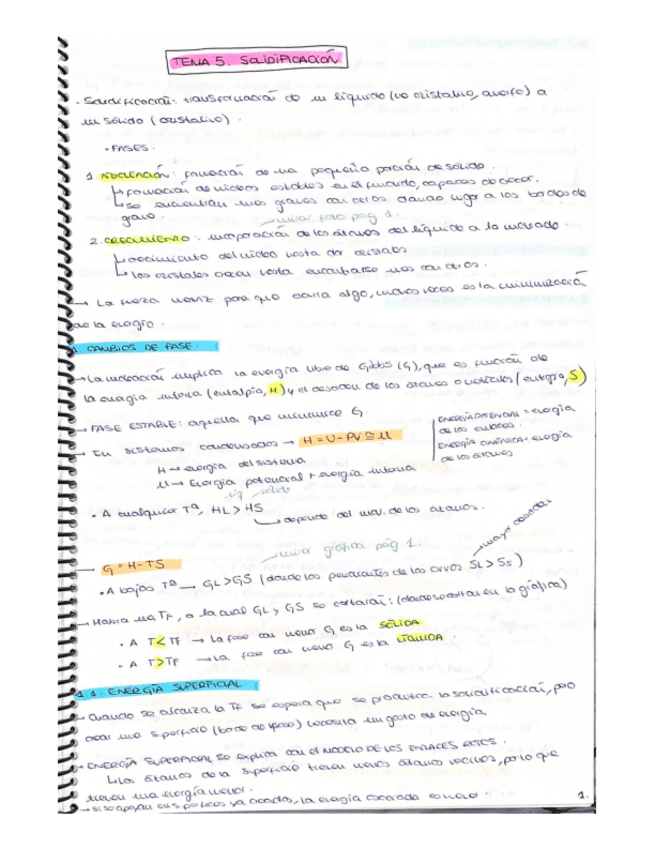 TEMA 5. SOLIDIFICACIÓN
- Solidificación: transformación de un líquido (no cristalino, amorfo) a
un sólido (cristalino).
• FASES.
1 NUCLEACIÓN: formación de una pequeña porción de sólido.
↳ formación de núcleos estables en el fundido, capaces de crecer.
↳ se encuentran unos granos con otros dando lugar a los bordes de
grano.
mirar foto pag 1.
2. CRECIMIENTO: incorporación de los átomos del líquido a lo
↳ crecimiento del núcleo hasta dar cristales
↳ los cristales crecen hasta encontrarse unos con otros.
→ La fuerza motriz para que ocurra algo, muchas veces es la minimización
de la energía.
1. CAMBIOS DE FASE.
→ La nucleación implica la energía libre de Gibbs (G), que es función de
la energía interna (entalpía, H) y el desorden de los átomos o moléculas (entropía, S)
→ FASE ESTABLE: aquella que minimice G.
→ En sistemas condensados → H = U - PV ≅ U
H → energía del sistema
U → Energía potencial + energía interna
ENERGÍA POTENCIAL = energía
de los enlaces.
ENERGÍA CINÉTICA = energía
de los átomos
líq sólido
• A cualquier Tª, HL > HS
↳ depende del mov. de los átomos.
mirar gráfica pág 1.
mayor desorden
→ G = H - TS
• A bajas Tª → GL > GS (dado las pendientes de las curvas SL > SS)
→ Habrá una TF, a la cual GL y GS se cortarán: (en la gráfica)
• A T < TF → La fase con menor G es la SÓLIDA
• A T > TF → La fase con menor G es la LÍQUIDA.
1.1. ENERGÍA SUPERFICIAL
- Cuando se alcanza la TF se espera que se produzca la solidificación, pero
crear una superficie (borde de grano) necesita un gasto de energía.
- ENERGÍA SUPERFICIAL se explica con el MODELO DE LOS ENLACES ROTOS.
↳ Los átomos de la superficie tienen menos átomos vecinos, por lo que
tienen una energía mayor.
→ si se apoyan en superficies ya creadas, la energía es menor.
1.